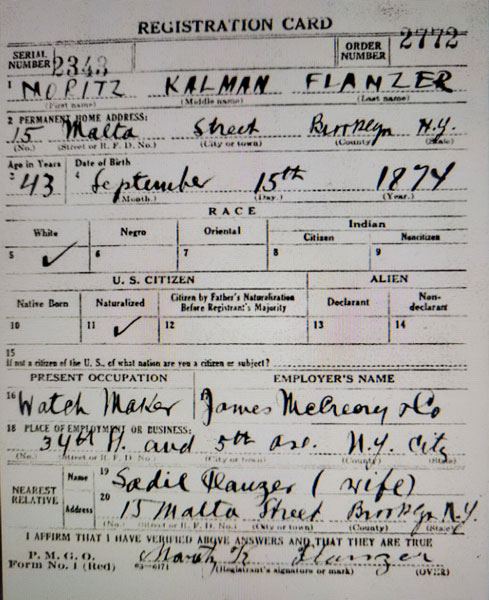 REGISTRATION CARD
SERIAL NUMBER 2343 ORDER NUMBER 2772
1 MORITZ KALMAN FLANZER
(First name) (Middle name) (Last name)
2 PERMANENT HOME ADDRESS:
15 Malta Street Brooklyn N.Y.
(No.) (Street or R. F. D. No.) (City or town) (County) (State)
Age in Years Date of Birth
3 43 4 September 15th 1874
(Month.) (Day.) (Year.)
RACE
White Negro Oriental Indian
Citizen Noncitizen
5 ✓ 6 7 8 9
U. S. CITIZEN ALIEN
Native Born Naturalized Citizen by Father's Naturalization Before Registrant's Majority Declarant Non-declarant
10 11 ✓ 12 13 14
15
If not a citizen of the U. S., of what nation are you a citizen or subject?
PRESENT OCCUPATION EMPLOYER'S NAME
16 Watch Maker 17 James McCreory & Co
18 PLACE OF EMPLOYMENT OR BUSINESS:
34th St. and 5th ave. N.Y. City
(No.) (Street or R. F. D. No.) (City or town) (County) (State)
NEAREST RELATIVE
Name 19 Sadie Flanzer (wife)
Address 20 15 Malta Street Brooklyn N.Y.
(No.) (Street or R. F. D. No.) (City or town) (County) (State)
I AFFIRM THAT I HAVE VERIFIED ABOVE ANSWERS AND THAT THEY ARE TRUE
P. M. G. O.
Form No. 1 (Red) 03—6171 Flanzer
(Registrant's signature or mark) (OVER)